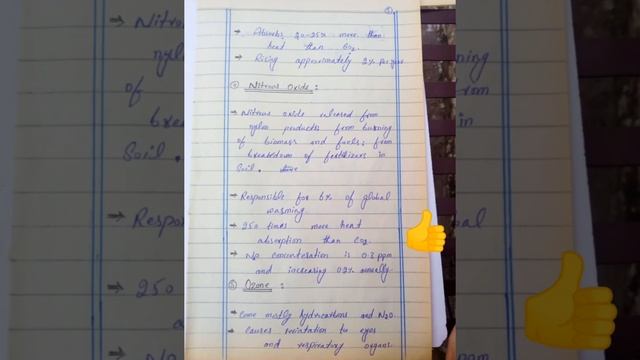 → Absorbs 20-25% more than
heat than CO2.
→ Rising approximately 2% per year
④ Nitrous Oxide :
→ Nitrous oxide released from
nylon products from burning
of biomass and fuels; from
breakdown of fertilizers in
Soil.
→ Responsible for 6% of global
warming
→ 250 times more heat
absorption than CO2.
→ concentration is 0.3 ppm
and increasing 0.2% annually.
⑤ Ozone :
→ Come mostly hydrocarbons and N2O.
→ Causes to eyes
and respiratory organs.